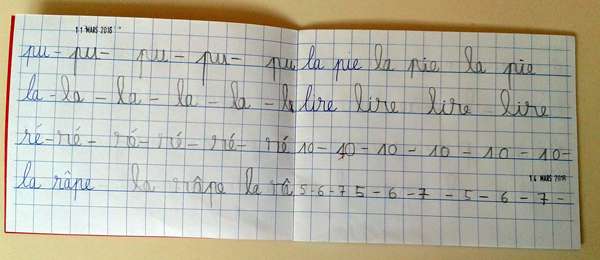 11 MARS 2016
pu - pu - pu - pu - pu
la - la - la - la - la - la
ré - ré - ré - ré - ré - ré
la râpe la râpe la râ
la pie la pie la pie
lire lire lire lire
10 - 10 - 10 - 10 - 10 - 10 -
14 MARS 2016
5 - 6 - 7 5 - 6 - 7 - 5 - 6 - 7 -